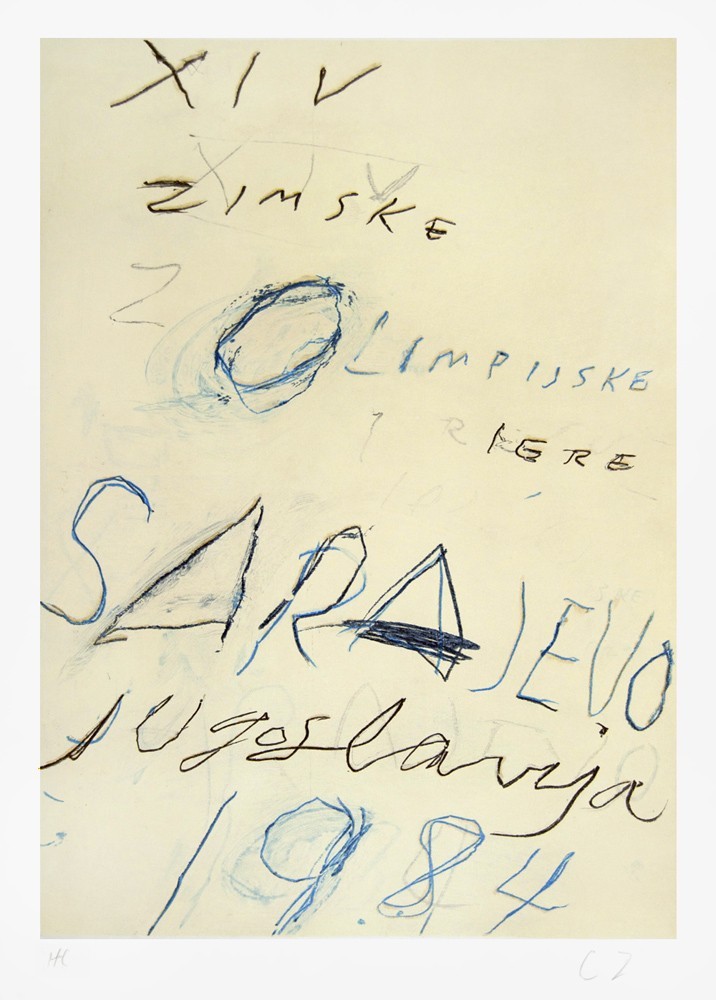 XIV
ZIMSKE
Z
OLIMPIJSKE
IERE
SARAJEVO
jugoslavija
19.84